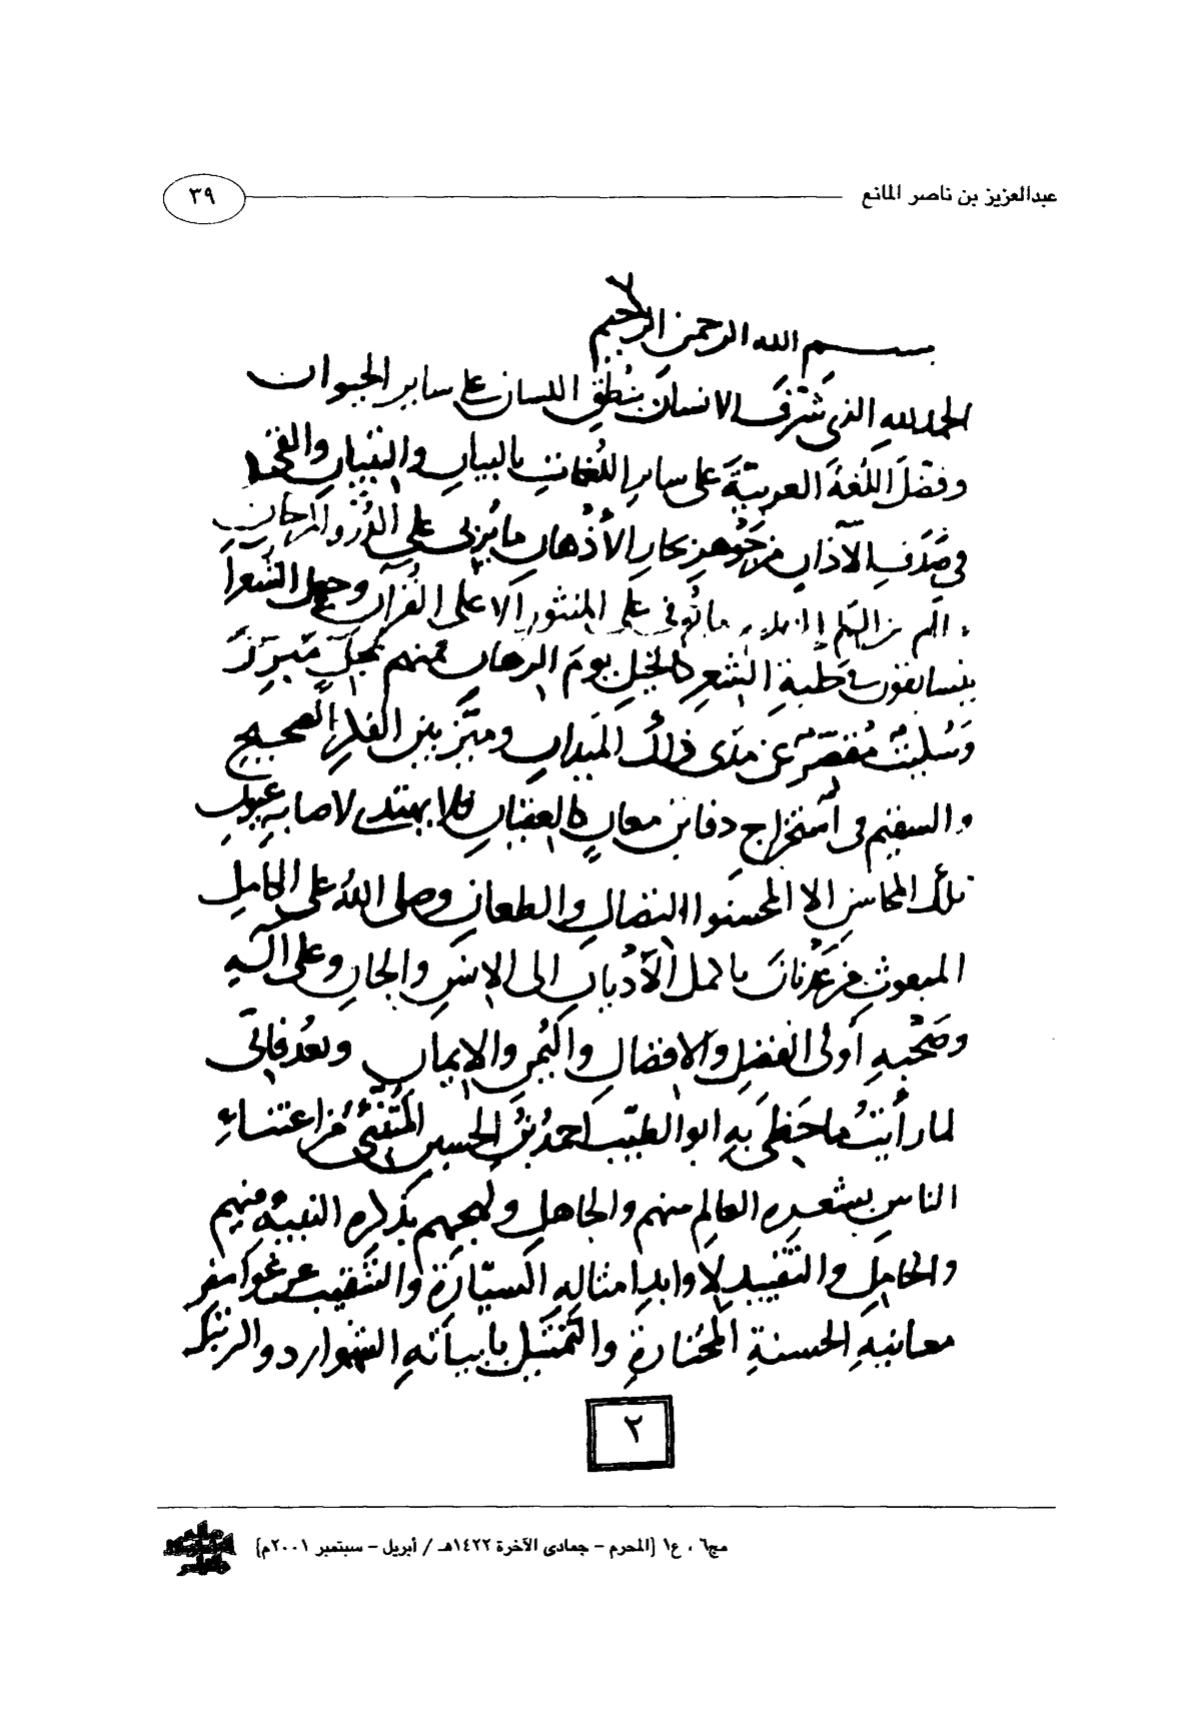 عبدالعزيز بن ناصر المانع
٣٩
بسم الله الرحمن الرحيم
الحمد لله الذى شَرَّفَ الانسانَ بنُطقِ اللسان على ساير الحيوان
وفضّلَ اللُّغةَ العربيّةَ على سايرِ اللُّغاتِ بالبيانِ والتبيانِ والقى
فى صَدَفِ الآذانِ من جَوْهرِ بحارِ الأذهان ما يُزرى على الدُّرِّ والمرجانِ
ما يُوفى على المنثور الا على القُرآن وجعل الشُّعرآ
يتسابقون فى حَلْبةِ الشعرِ كالخيلِ يومَ الرهان فمنهم مُجَلٍّ مُبَرِّزٌ
وسُكَيتٌ مُقصّرٌ عن مَدَى ذلك المَيدانِ ومَيَّز بين الفكر الصحيح
والسقيم فى اُستخراج دفاين معانٍ كالعقيانِ فلا يهتدى لاصابةِ عيونِ
تلك المحاسنِ الا المحسنوا النضالِ والطعانِ وصلى اللهُ على الكاملِ
المبعوثِ من عَدْنانَ باكمل الأديانِ الى الإنسِ والجانِ وعلى آلهِ
وصَحْبهِ أولى الفضلِ والافضالِ واليُمنِ والإيمانِ وبعدُ فانّى
لما رأيتُ ما حَظِىَ بهِ ابو الطيّبِ احمدُ بنُ الحسينِ المُتَنَبِّئُ من اعتناءِ
الناسِ بشعرهِ العالمِ منهم والجاهلِ ولَهَجِهم بذكرهِ النبيهِ منهم
والخاملِ والتقييدِ لِاوابدِ امثالهِ السيّارةِ والتنقيبِ عن غوامضِ
معانيهِ الحسنةِ المُختارةِ والتمثيلِ بابياتهِ الشوارد والرتبكه
٢
مج٦ ، ع١ (المحرم - جمادى الآخرة ١٤٢٢هـ / أبريل - سبتمبر ٢٠٠١م)